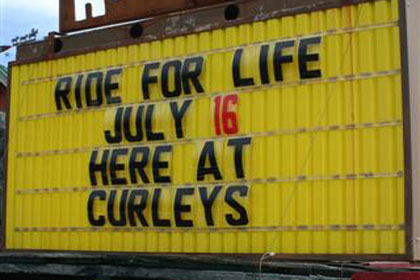 RIDE FOR LIFE
JULY 16
HERE AT
CURLEYS